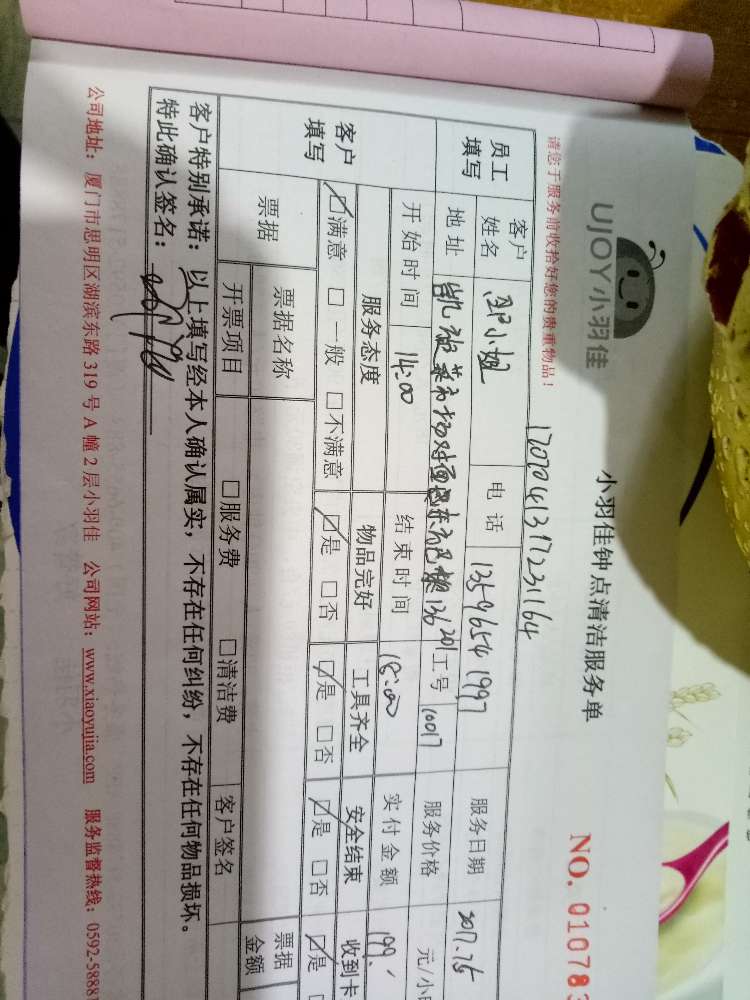 UJOY小羽佳
小羽佳钟点清洁服务单
NO. 010783
请您于服务前收拾好您的贵重物品!
17070413172231164
员工填写 客户姓名 邱小姐 电话 13596541997 服务日期
地址 工号 10017 服务价格 元/小
开始时间 14:00 结束时间 18:00 实付金额 199.
客户填写 服务态度 物品完好 工具齐全 安全结束 收到卡
☑满意 □一般 □不满意 ☑是 □否 ☑是 □否 ☑是 □否 ☑是
票据 票据名称 票据金额
开票项目 □服务费 □清洁费 客户签名
客户特别承诺:以上填写经本人确认属实,不存在任何纠纷,不存在任何物品损坏。
特此确认签名:
公司地址:厦门市思明区湖滨东路 319 号 A 幢 2 层小羽佳 公司网站:www.xiaoyujia.com 服务监督热线:0592-5888